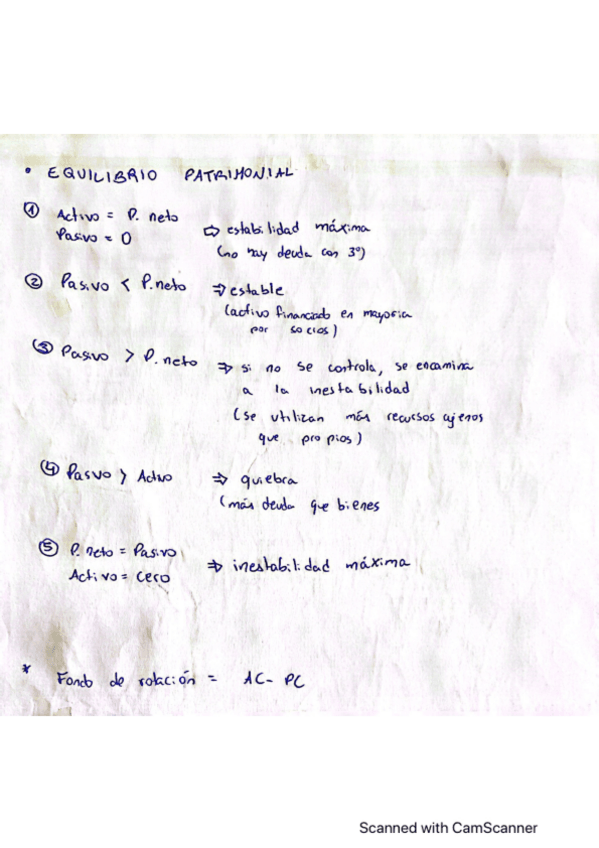 • EQUILIBRIO PATRIMONIAL
① Activo = P. neto
Pasivo = 0
⇒ estabilidad máxima
(no hay deuda con 3º)
② Pasivo < P.neto ⇒ estable
(activo financiado en mayoria
por socios)
③ Pasivo > P. neto ⇒ si no se controla, se encamina
a la inestabilidad
(se utilizan más recursos ajenos
que propios)
④ Pasivo > Activo ⇒ quiebra
(más deuda que bienes
⑤ P. neto = Pasivo
Activo = cero
⇒ inestabilidad máxima
* Fondo de rotación = AC - PC
Scanned with CamScanner